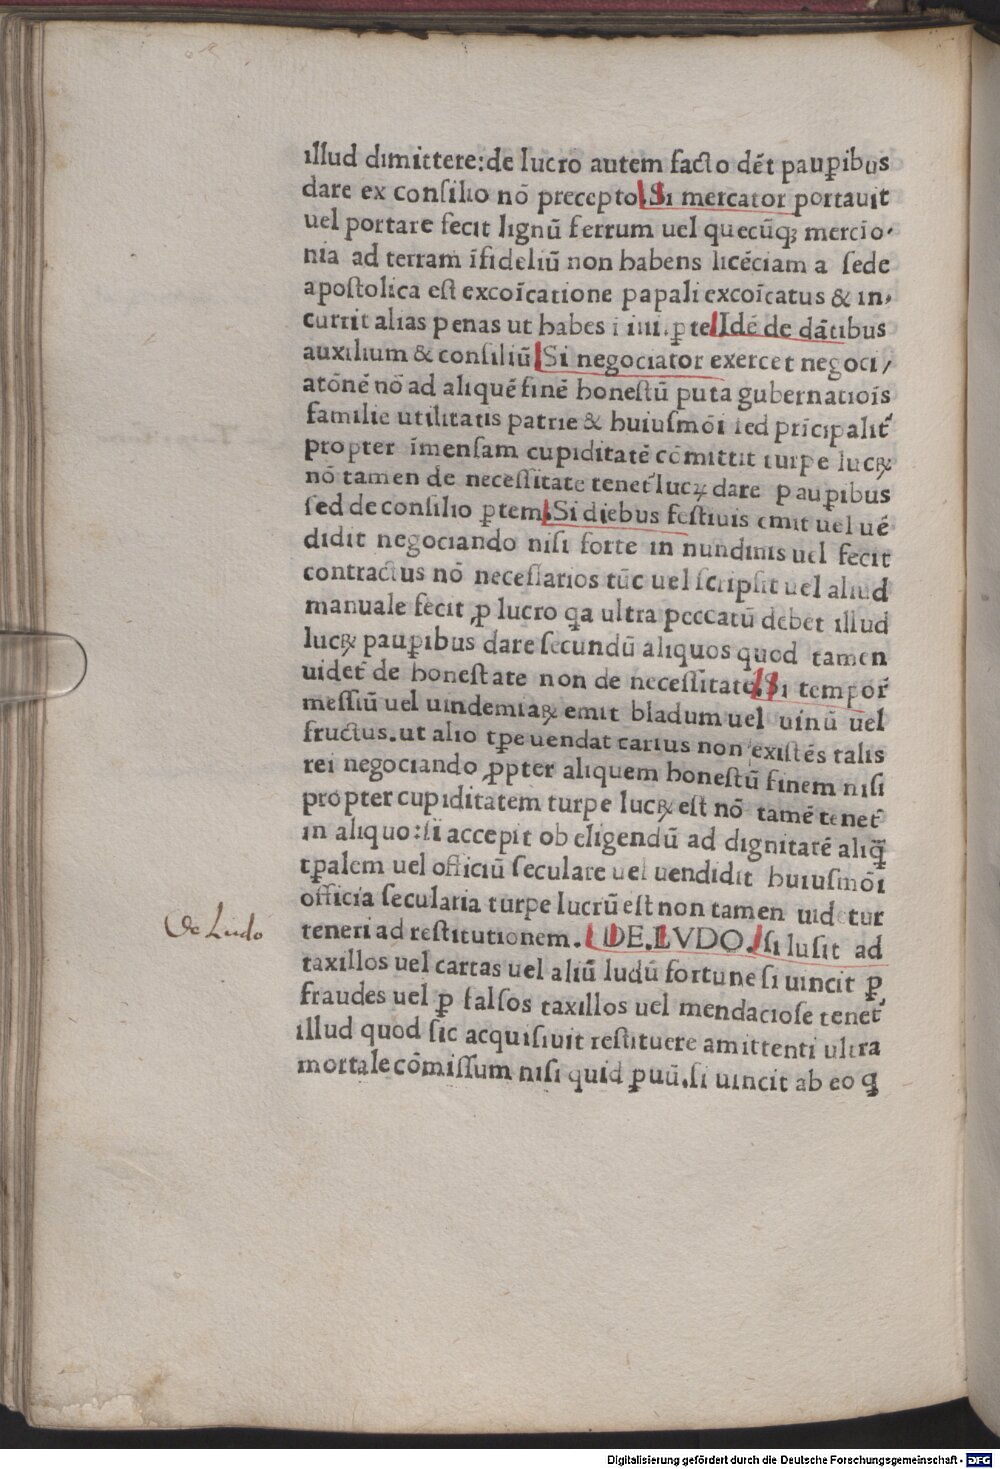 illud dimittere: de lucro autem facto dēt paup̲ibus
dare ex consilio nō precepto. Si mercator portauit
uel portare fecit lignū ferrum uel quecūq; mercio-
nia ad terram īfideliū non habens licēciam a sede
apostolica est excoīcatione papali excoīcatus & in-
currit alias penas ut habes i iiii. p̲te Idē de dātibus
auxilium & consiliū Si negociator exercet negoci/
atōnē nō ad aliquē finē honestū puta gubernatiois
familie utilitatis patrie & huiusmōi sed prīcipalit̉
propter īmensam cupiditatē cōmittit turpe lucꝝ
nō tamen de necessitate tenet̉ lucꝝ dare paup̲ibus
sed de consilio p̲tem. Si diebus festiuis emit uel uē
didit negociando nisi forte in nundinis uel fecit
contractus nō necessarios tūc uel scripsit uel aliud
manuale fecit ꝓ lucro qa ultra peccatū debet illud
lucꝝ paup̲ibus dare secundū aliquos quod tamen
uidet̉ de honestate non de necessitate. Si tempor̄
messiū uel uindemiaꝝ emit bladum uel uinū uel
fructus. ut alio tp̲e uendat carius non existēs talis
rei negociando ꝓpter aliquem honestū finem nisi
propter cupiditatem turpe lucꝝ est nō tamē tenet̉
in aliquo: si accepit ob eligendū ad dignitatē aliq̄
tp̲alem uel officiū seculare uel uendidit huiusmōi
officia secularia turpe lucrū est non tamen uidetur
teneri ad restitutionem. DE. LVDO. si lusit ad
taxillos uel cartas uel aliū ludū fortune si uincit p̲
fraudes uel p̲ falsos taxillos uel mendaciose tenet̉
illud quod sic acquisiuit restituere amittenti ultra
mortale cōmissum nisi quid p̲uū. si uincit ab eo q̲
De Ludo
Digitalisierung gefördert durch die Deutsche Forschungsgemeinschaft - DFG